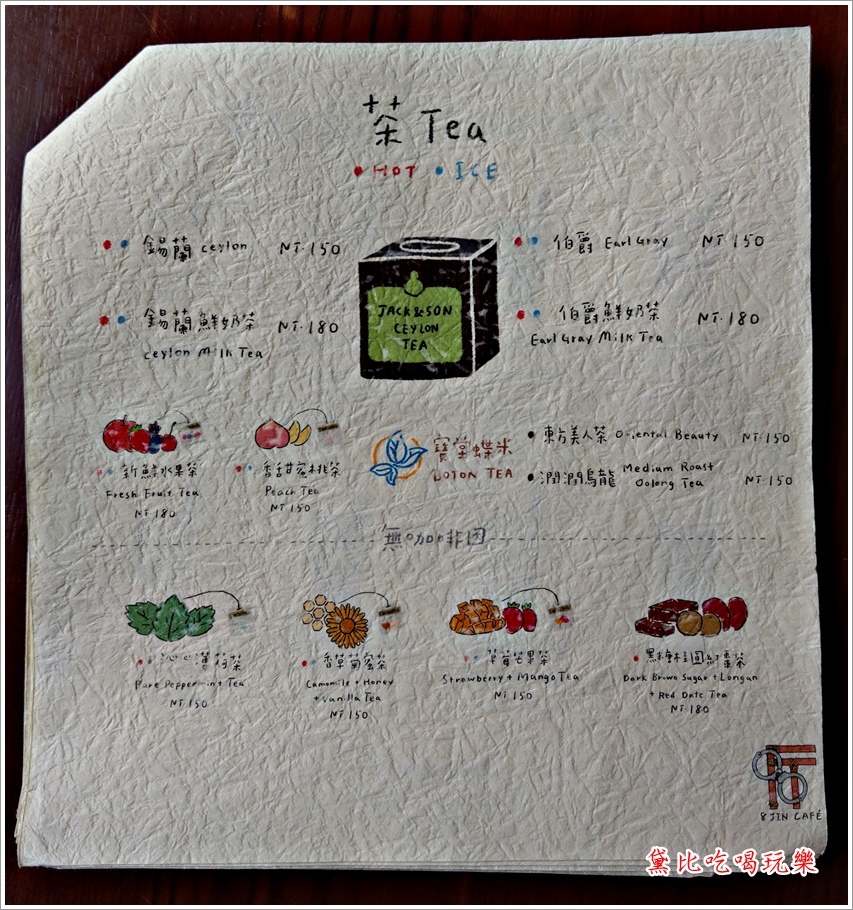 茶 Tea
HOT ICE
錫蘭 ceylon NT.150
伯爵 Earl Gray NT.150
錫蘭鮮奶茶 NT.180
ceylon Milk Tea
伯爵鮮奶茶 NT.180
Earl Gray Milk Tea
JACK&SON
CEYLON
TEA
新鮮水果茶
Fresh Fruit Tea
NT.180
香甜蜜桃茶
Peach Tea
NT.150
寶島蝶米
TEA
東方美人茶 Oriental Beauty NT.150
潤潤烏龍 Medium Roast
Oolong Tea NT.150
無咖啡因
沁心薄荷茶
Pure Peppermint Tea
NT.150
香草菊蜜茶
Camomile + Honey
+ Vanilla Tea
NT.150
草莓芒果茶
Strawberry + Mango Tea
NT.150
黑糖桂圓紅棗茶
Dark Brown Sugar + Longan
+ Red Date Tea
NT.180
8 JIN CAFÉ
黛比吃喝玩樂